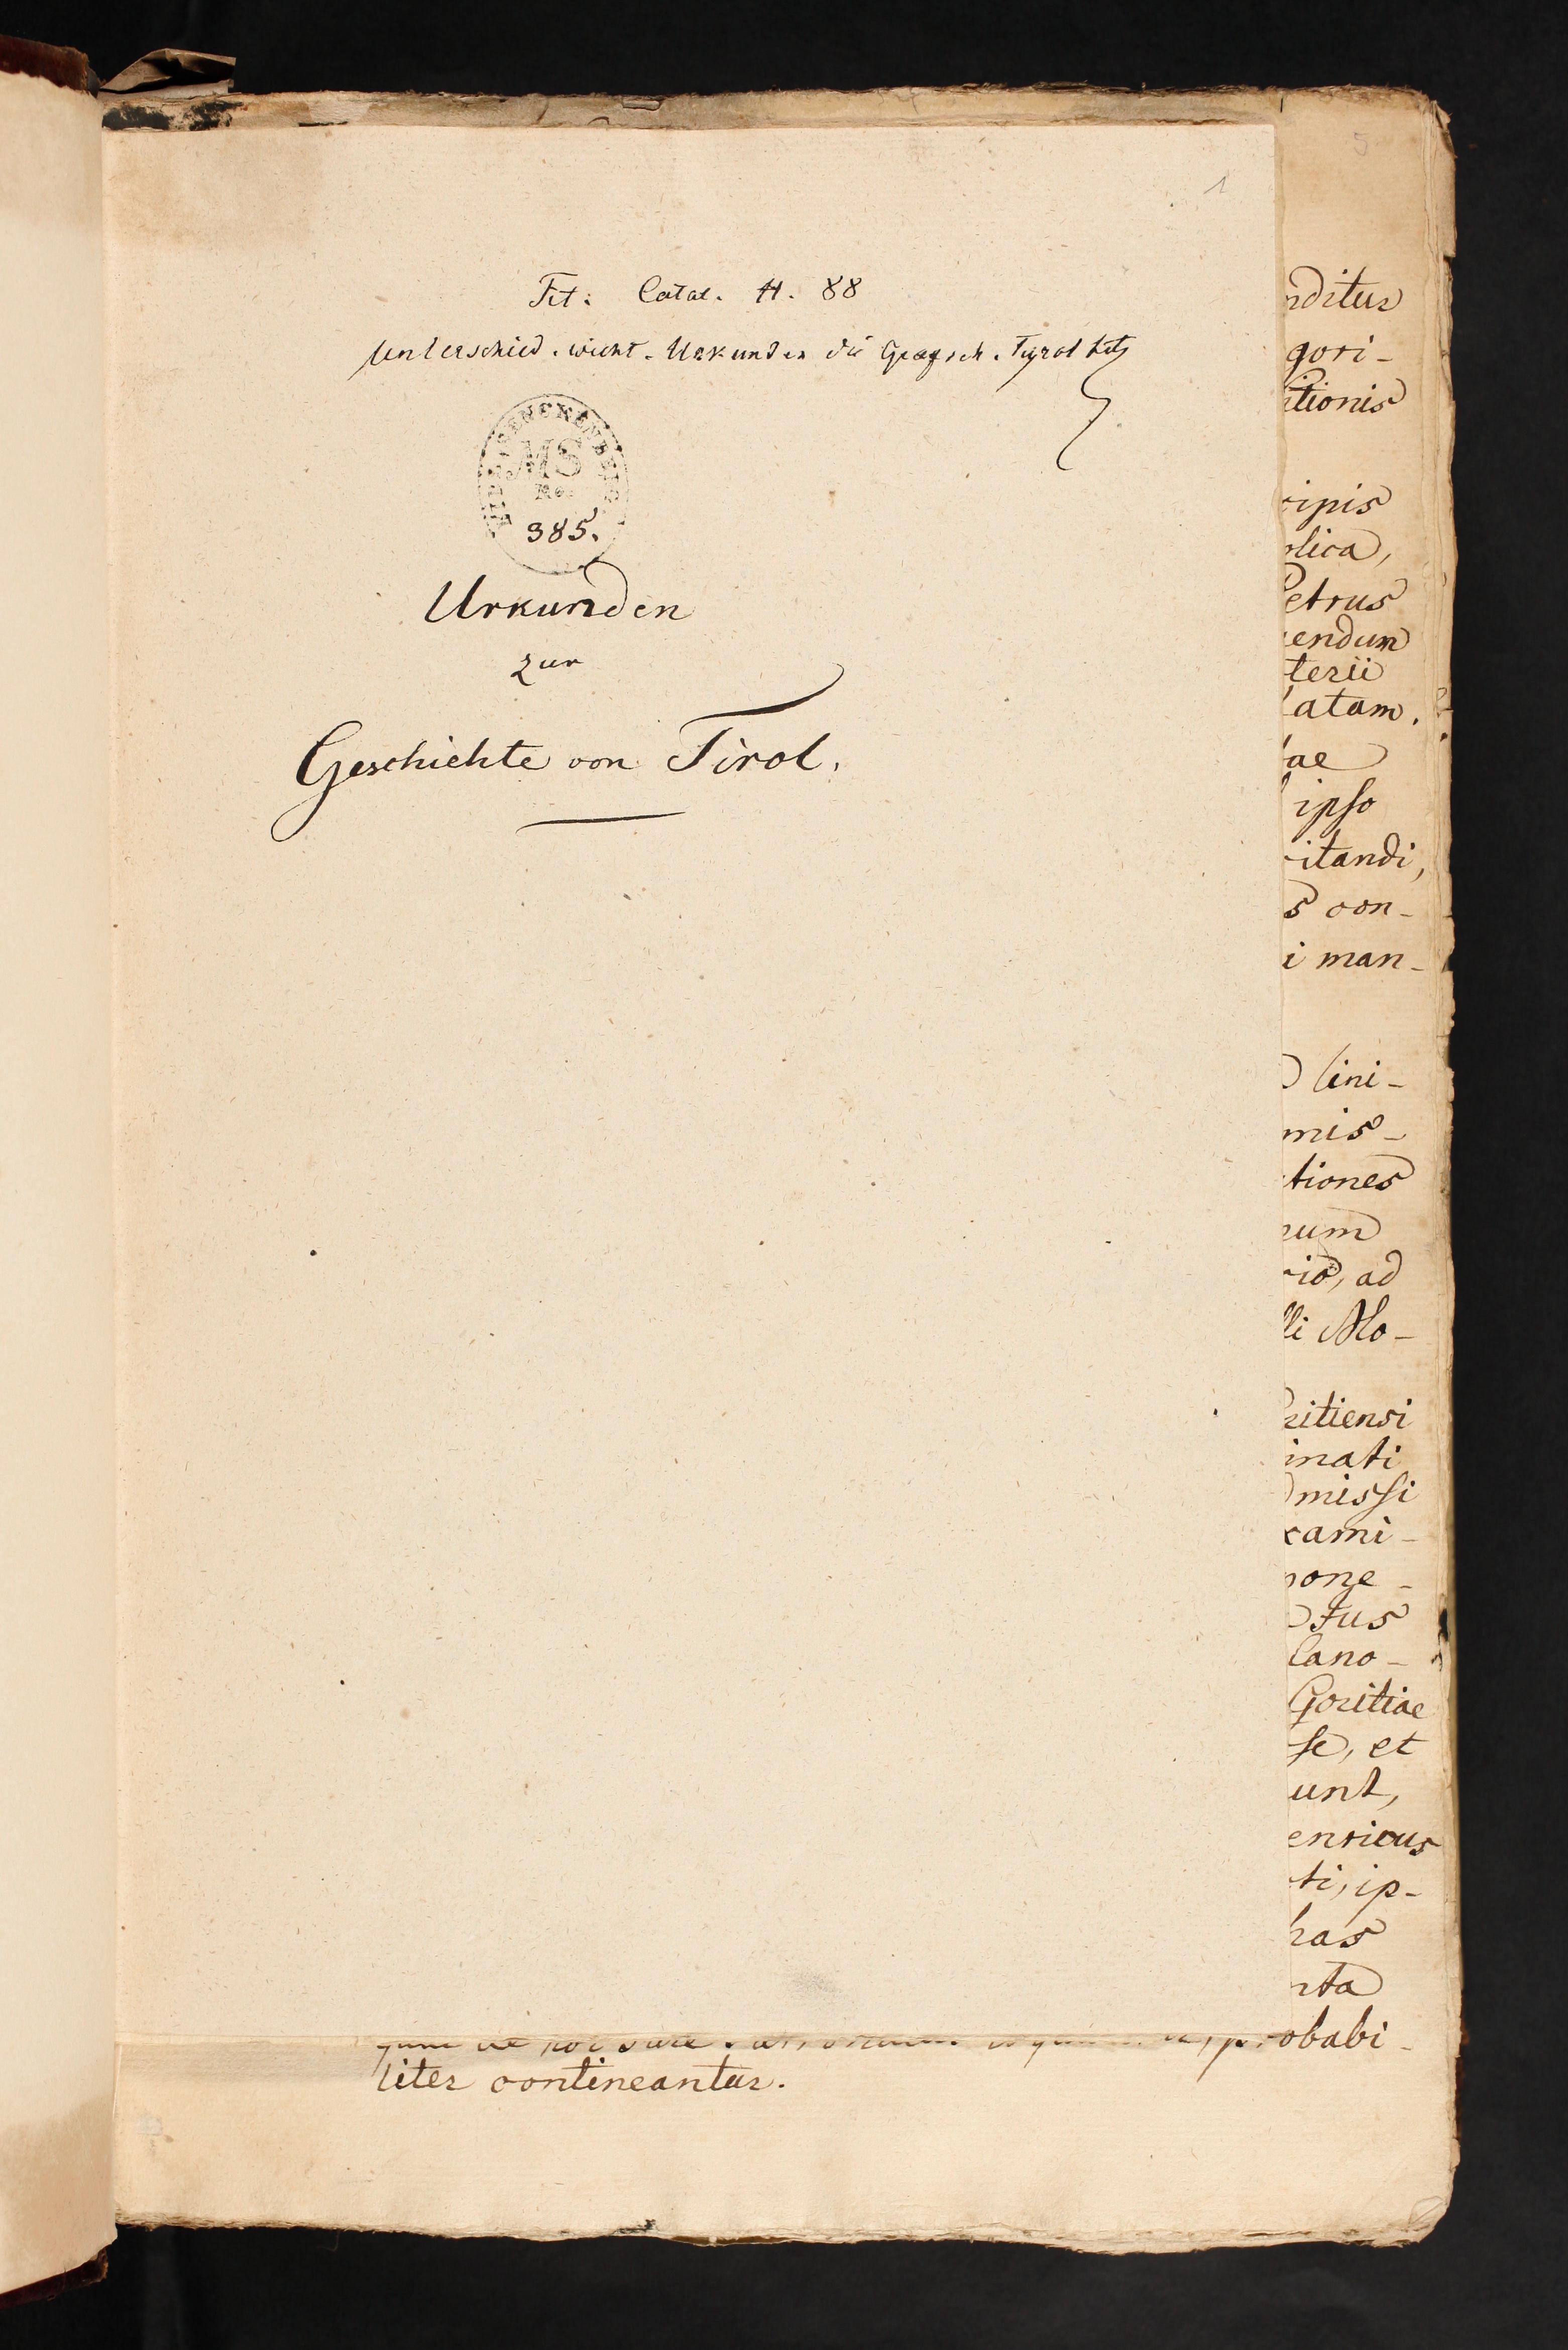 1
Tit. Catal. H. 88
Unterschied. wicht. Urkunden die Grafsch. Tyrol
BIBL. SENCKENBERG.
MS
No.
985.
Urkunden
zur
Geschichte von Tirol.
5
nditur
gori-
itionis
cipis
lica,
Petrus
endum
terii
atam.
ae
ipso
itandi,
s con-
i man-
lini-
mis-
tiones
num
rio, ad
li Mo-
ritiensi
inati
missi
xami-
pone-
tus
Cano-
Goritiae
se, et
unt,
enricus
ti, ip-
has
nta
probabi-
liter contineantur.